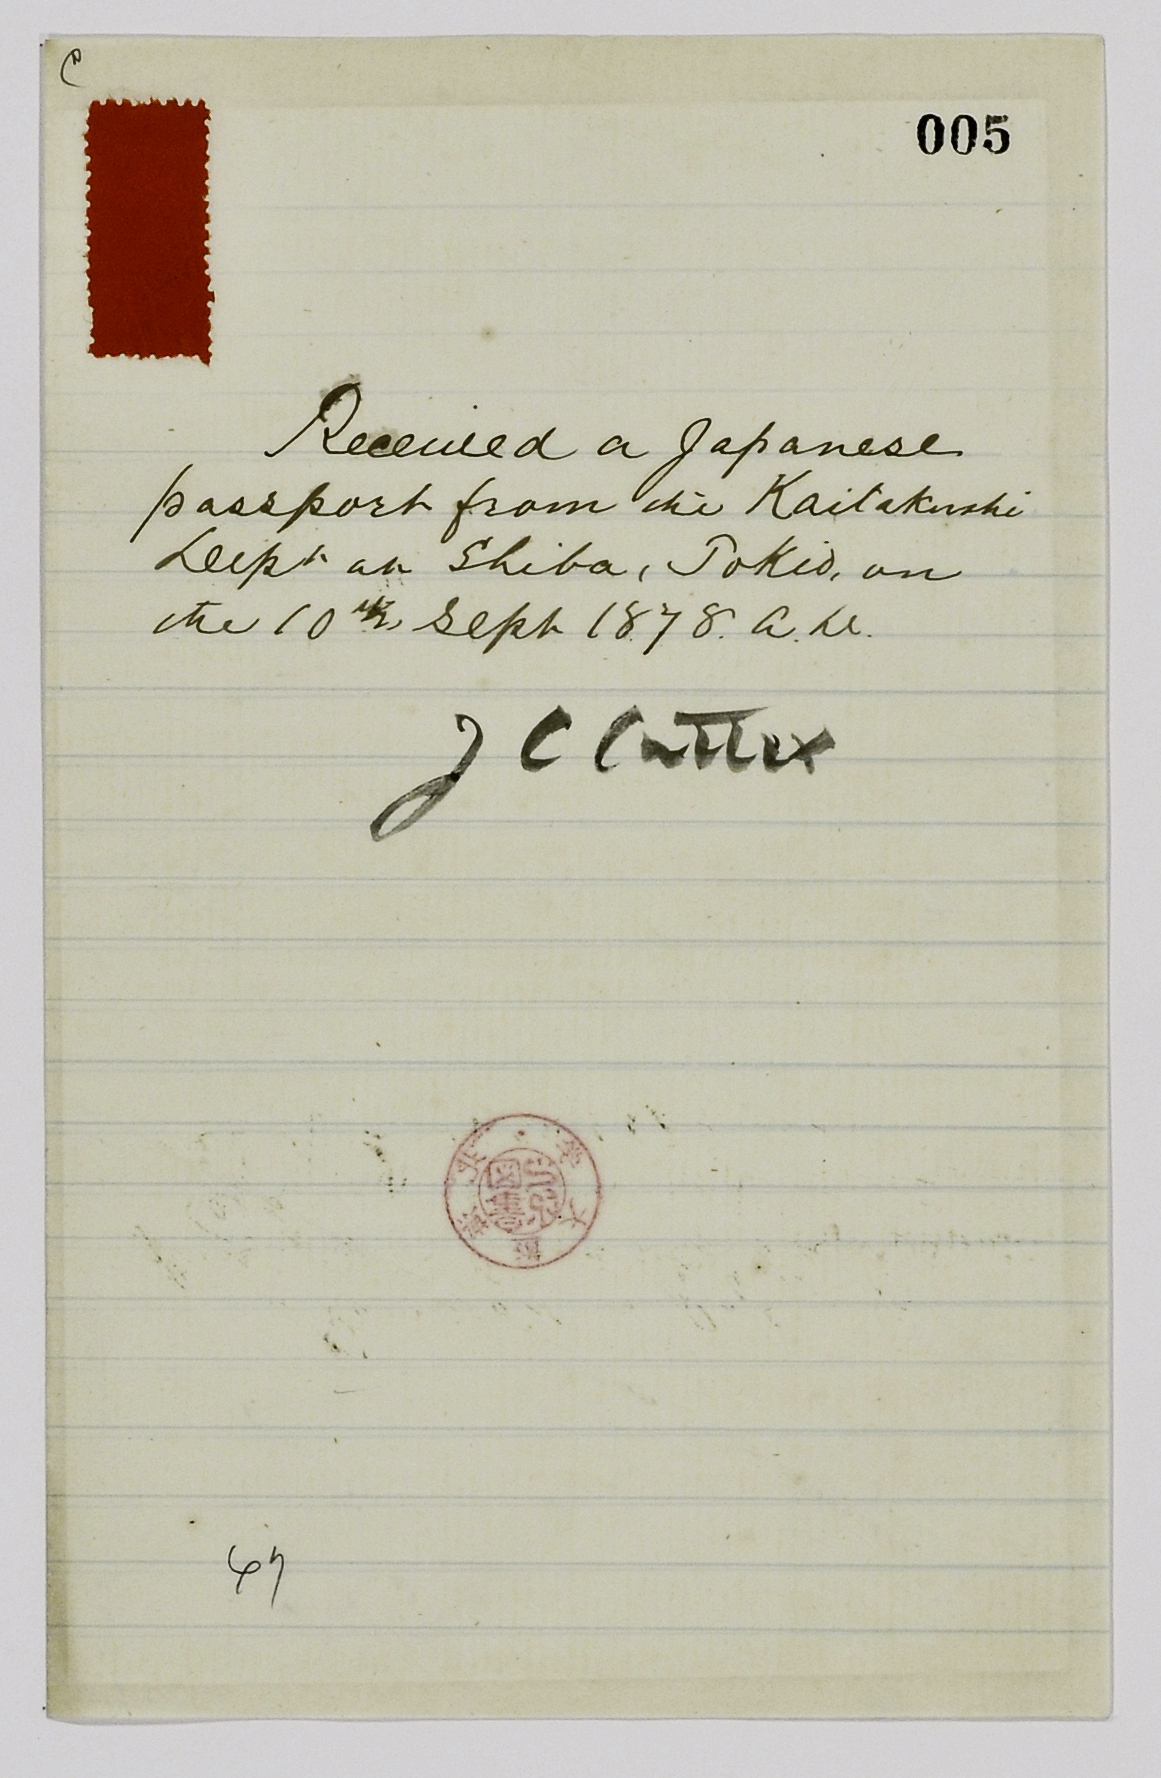 005
Received a Japanese
passport from the Kaitakushi
Dept at Shiba, Tokio, on
the 10th Sept 1878. A.D.
J C Cutter
圖書
47